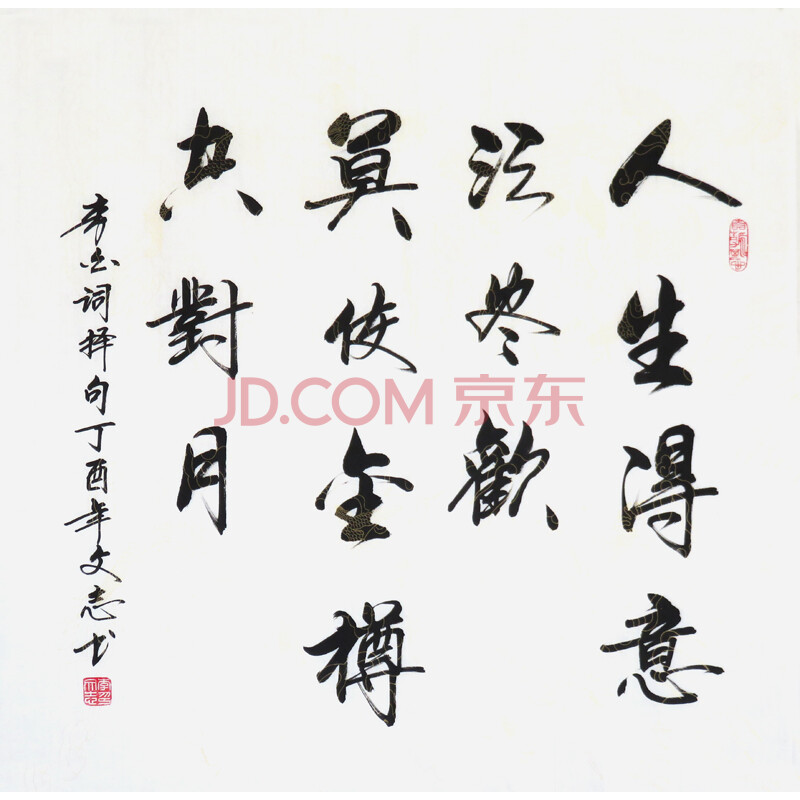 人生得意
须尽歡
莫使金樽
共對月
李白词择句丁酉年文志书
JD.COM 京东